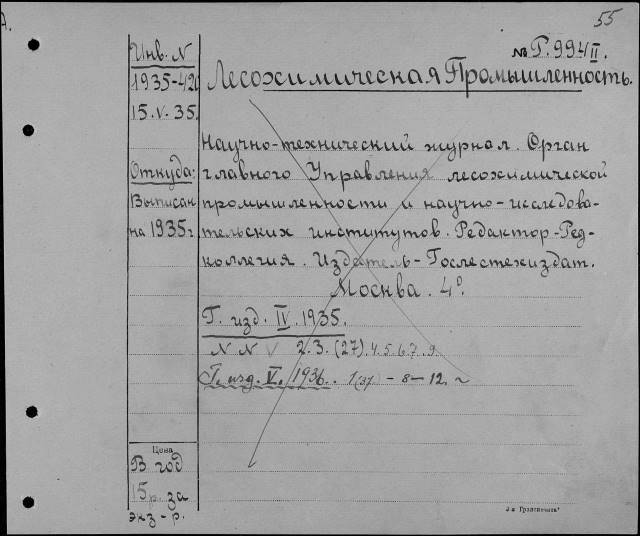 55
№ Г. 994 II.
Инв. N
1935-420
15.V.35.
Откуда:
Выписан
на 1935 г
Лесохимическая Промышленность.
Научно-технический журнал. Орган
главного Управления лесохимической
промышленности и научно-исследова-
тельских институтов. Редактор-Ред-
коллегия. Издатель-Гослестехиздат.
Москва. 4°.
Г. изд. IV. 1935.
N N V 2.3.(27).4.5.6.7.9.
Г. изд. V. 1936. 1(37) - 8 - 12.
Цена
В год
15 р. за
экз - р.